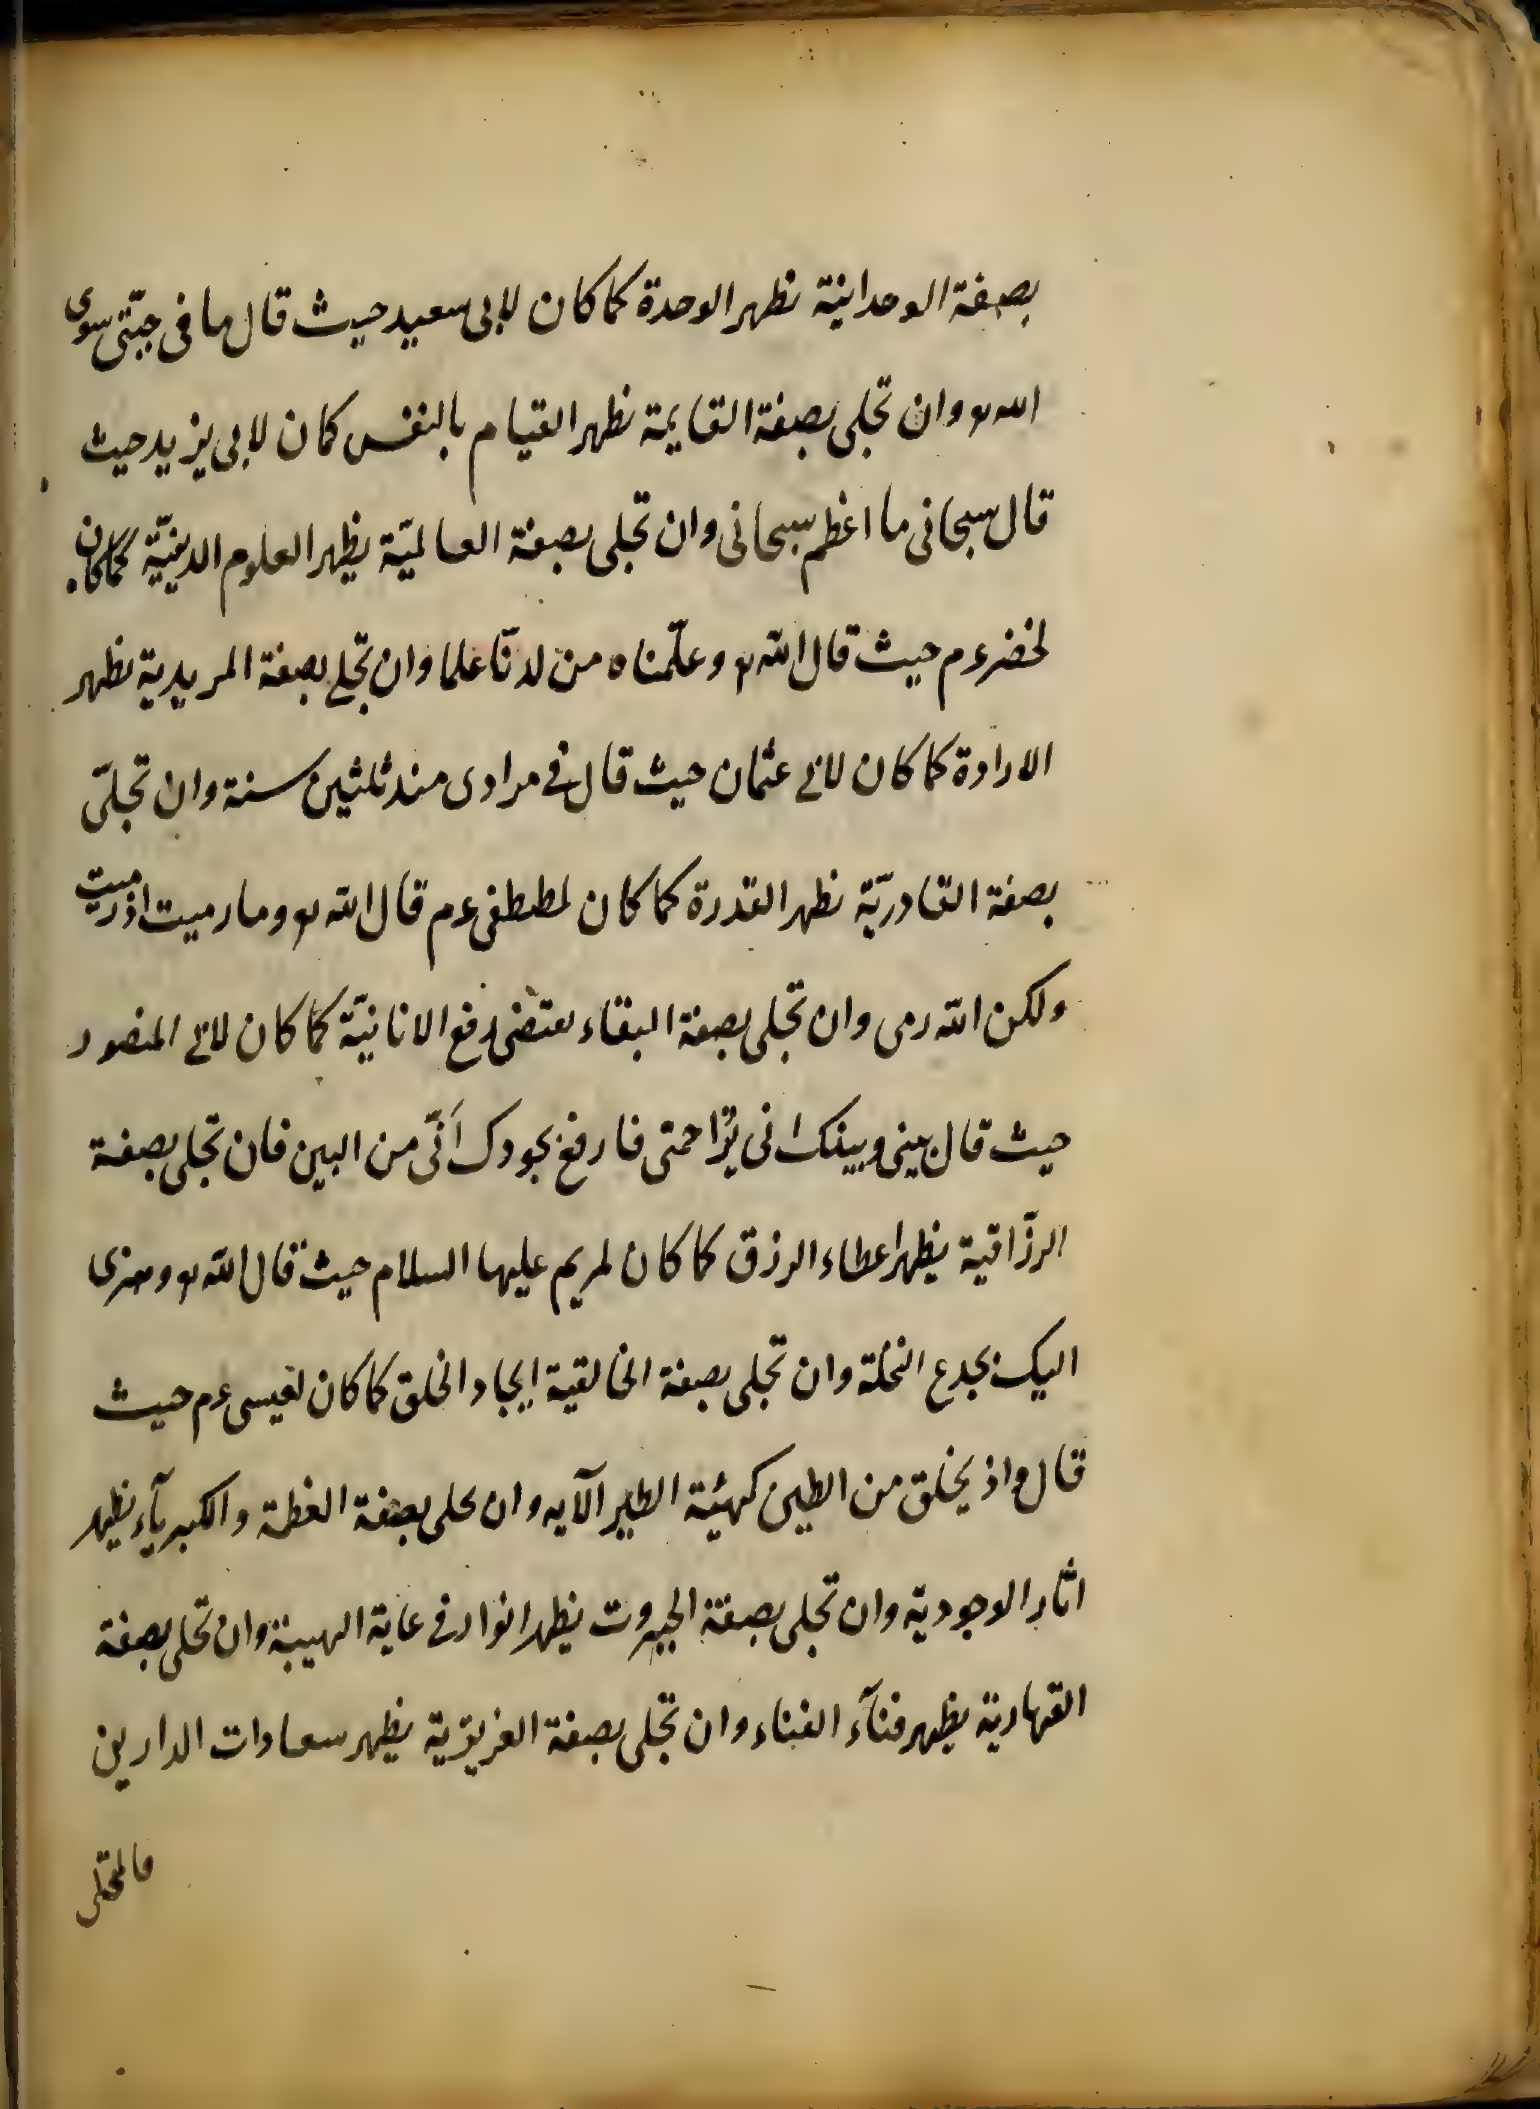 بصفة الوحدانية نظهر الوحدة كما كان لابى سعيد حيث قال ما فى جبّتى سوى
الله وان تجلى بصفة القايمة نظهر القيام بالنفس كمان لابى يزيد حيث
قال سبحانى ما اعظم سبحانى وان تجلى بصفة العالميّة يظهر العلوم الدينيّة كما كان
لخضر عم حيث قال الله تع وعلّمناه من لدنّا علما وان تجلى بصفة المريدية نظهر
الارادة كما كان لابى عثمان حيث قال فى مرادى منذ ثلثين سنة وان تجلّى
بصفة القادريّة نظهر القدرة كما كان لمطصفى عم قال الله تع وما رميت اذ رميت
ولكن الله رمى وان تجلى بصفة البقاء يقتضى رفع الانانيّة كما كان لابى المنصور
حيث قال بينى وبينك انى يزاحمنى فارفع بجودك أنّى من البين فان تجلى بصفة
الرزّاقية يظهر اعطاء الرزق كما كان لمريم عليها السلام حيث قال الله تع وهزى
اليك بجدع النخلة وان تجلى بصفة الخالقية ايجاد الخلق كما كان لعيسى عم حيث
قال واذ يخلق من الطين كهيئة الطير الآيه وان تجلى بصفة العظمة والكبريآء يظهر
اثار الوجودية وان تجلى بصفة الجبروت يظهر انوار فى غاية الهيبة وان تجلى بصفة
القهارية يظهر فنآء الفناء وان تجلى بصفة العزيزية يظهر سعادات الدارين